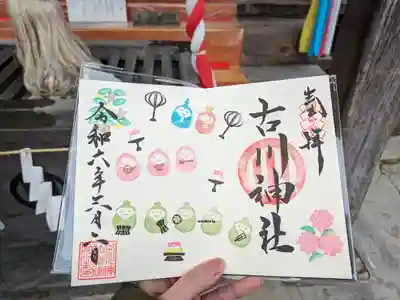 奉拝
古川神社
令和六年三月二日